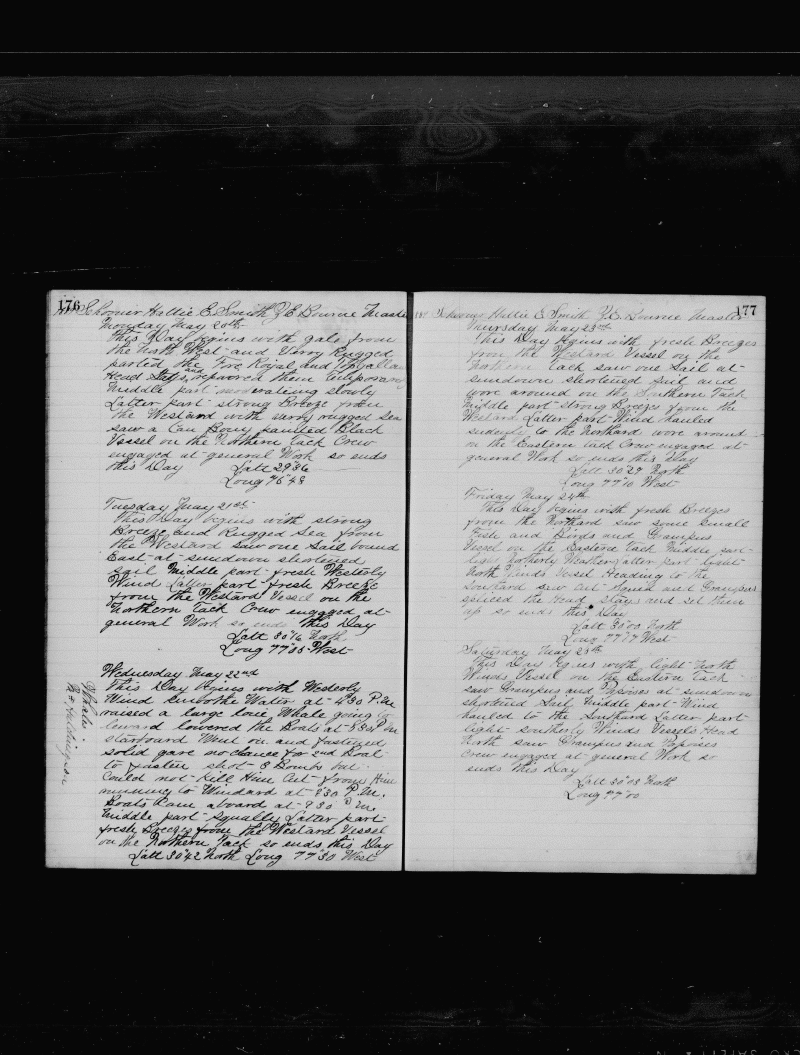 176
Schooner Hattie E Smith Z E Bourne Master
Monday May 20th
This Day begins with gale from
the North West and Verry Rugged
parted the Fore Royal and Topgallan
Head Stays and repaired them temporary
Middle part moderating slowly
Latter part strong Breeze from
the Westard with verry rugged Sea
saw a Can Bouy painted Black
Vessel on the Nothern Tack Crew
engaged at general Work so ends
this Day Latt 29°36
Long 76°48
Tuesday May 21st
This Day begins with strong
Breeze and Rugged Sea from
the Westard saw one Sail bound
East at sundown shortened
sail Middle part fresh Westerly
Wind Latter part fresh Breeze
from the Westard Vessel on the
Northern Tack Crew engaged at
general Work so ends this Day
Latt 30°16 North
Long 77°05 West
Wednesday May 22nd
This Day begins with Westerly
Wind smoothe Water at 4.30 P.M
raised a large lone Whale going to
leward lowered the Boats at 5.30 P M
starboard Went on and fastened
solid gave no chance for 2nd Boat
to fasten shot 3 Bombs but
Could not kill Him Cut from Him
running to Windard at 8.30 P.M.
Boats Came aboard at 9 30 P M.
Middle part Squally Latter part
fresh Breeze from the Westard Vessel
on the Northern Tack so ends this Day
Latt 30°42 North Long 77°30 West
177
Schooner Hattie E Smith Z.E. Bournce Master
Thursday May 23rd
This Day begins with fresh Breezes
from the Westard Vessel on the
Northern Tack saw one Sail at
sundown shortened Sail and
wore around on the Southern Tack
middle part strong Breezes from the
Westard Latter part Wind hauled
suddenly to the Northard wore around
on the Eastern tack Crew engaged at
general Work so ends this Day
Latt 30°29 North
Long 77°10 West
Friday May 24th
This Day begins with fresh Breezes
from the Northard saw some small
Fish and Birds and Grampus
Vessel on the Eastern Tack Middle part
light Northerly Weather Latter part light
North Winds Vessel Heading to the
Southard saw and Grampus
spliced the Head Stays and set them
up so ends this Day
Latt 30°00 North
Long 77°17 West
Saturday May 25th
This Day begins with light North
Winds Vessel on the Eastern Tack
saw Grampus and Poposes at sundown
shortened Sail Middle part Wind
hauled to the Southard Latter part
light Southerly Winds Vessels Head
North saw Grampus and Poposes
Crew engaged at general Work so
ends this Day
Latt 30°03 North
Long 77°00